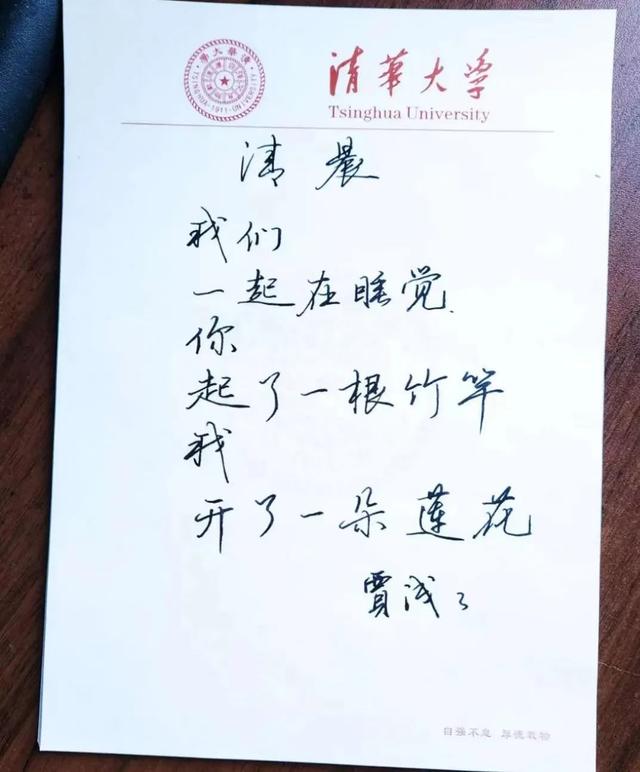 清華大学
Tsinghua University
清晨
我们
一起在睡觉
你
起了一根竹竿
我
开了一朵莲花
賈浅浅
自强不息 厚德载物